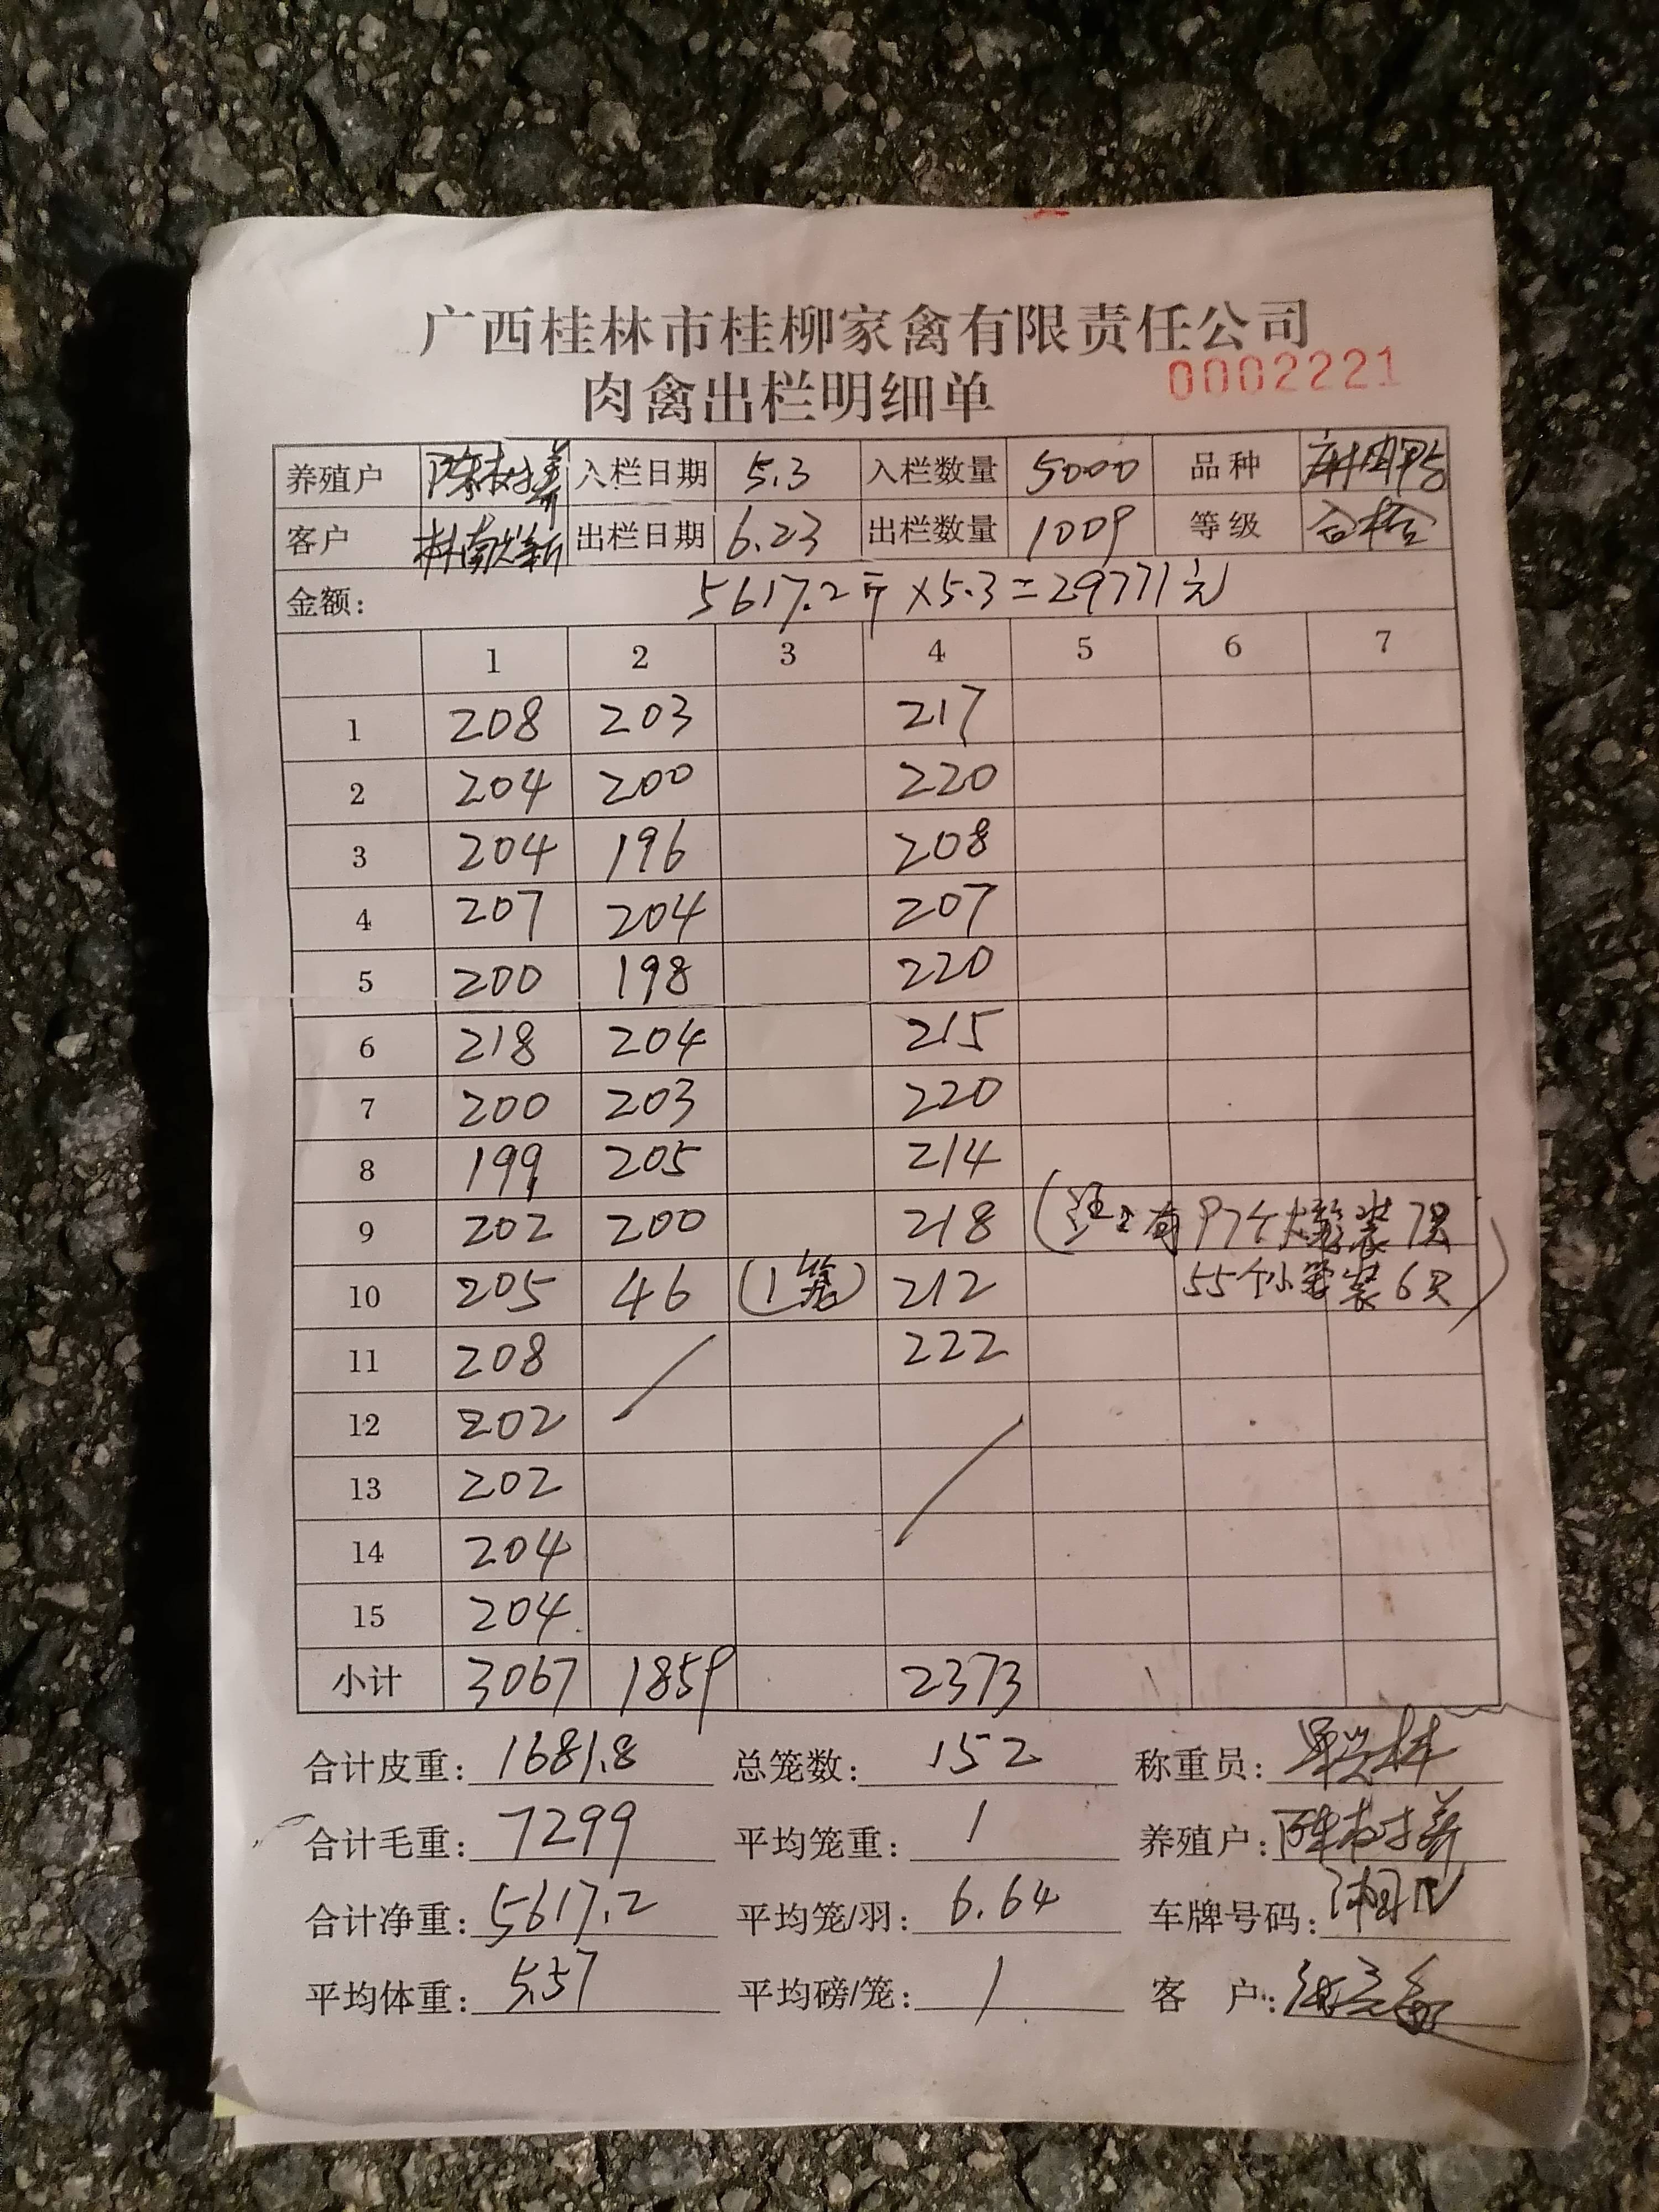 广西桂林市桂柳家禽有限责任公司
肉禽出栏明细单
0002221
养殖户 陈 入栏日期 5.3 入栏数量 5000 品种 麻肉鸭
客户 林南 出栏日期 6.23 出栏数量 1009 等级 合格
金额: 5617.2斤×5.3=29771元
1 2 3 4 5 6 7
1 208 203 217
2 204 200 220
3 204 196 208
4 207 204 207
5 200 198 220
6 218 204 215
7 200 203 220
8 199 205 214
9 202 200 218 (注:有97个大笼装7只
10 205 46 (1笼) 212 55个小笼装6只)
11 208 222
12 202
13 202
14 204
15 204
小计 3067 1859 2373
合计皮重: 1681.8 总笼数: 152 称重员:
合计毛重: 7299 平均笼重: / 养殖户: 陈
合计净重: 5617.2 平均笼/羽: 6.64 车牌号码: 湘
平均体重: 5.57 平均磅/笼: / 客 户: